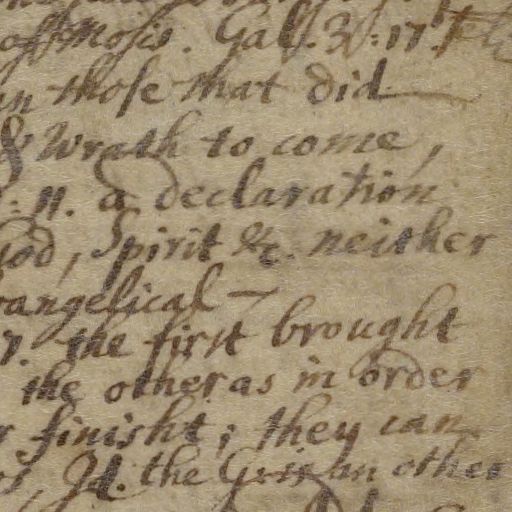 of Mosis. Gall. 3:17.
in those that did
& Wrath to come,
: 11. a declaration
God, Spirit &c. neither
vangelical
7. the first brought
the other as in order
finisht; they can
Id. the an other